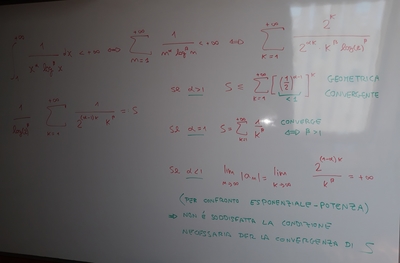 ∫₂^{+∞} 1/(x^α log^β x) dx < +∞ ⟺ Σ_{n=2}^{+∞} 1/(n^α log^β n) < +∞ ⟺ Σ_{k=1}^{+∞} 2^k/(2^{αk} k^β log(2)^β)
1/log(2)^β Σ_{k=1}^{+∞} 1/(2^{(α-1)k} k^β) = S
SE α>1 S = Σ_{k=1}^{+∞} [(1/2)^{α-1}]^k <1 GEOMETRICA CONVERGENTE
SE α=1 S = Σ_{k=1}^{+∞} 1/k^β CONVERGE ⟺ β>1
SE α<1 lim_{k→∞} |a_k| = lim_{k→∞} 2^{(1-α)k}/k^β = +∞
(PER CONFRONTO ESPONENZIALE-POTENZA)
⇒ NON È SODDISFATTA LA CONDIZIONE
NECESSARIA PER LA CONVERGENZA DI S